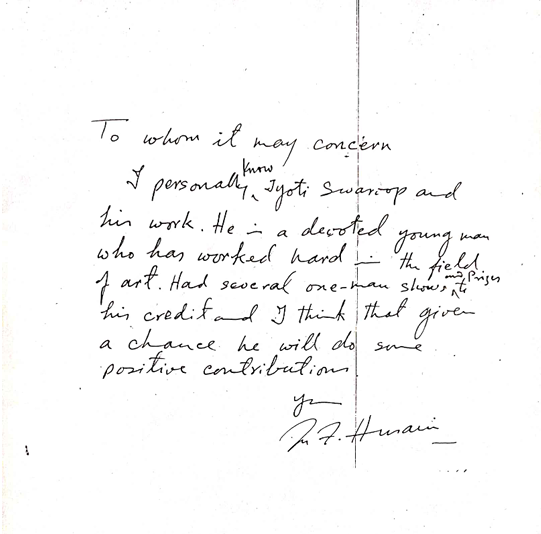 To whom it may concern
I personally know Jyoti Swaroop and
his work. He is a devoted young man
who has worked hard in the field
of art. Had several one-man shows and Prizes to
his credit and I think that given
a chance he will do some
positive contributions.
M. F. Husain